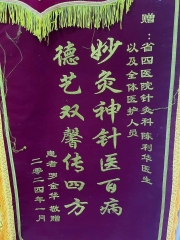 赠：省四医院针灸科陈利华医生
以及全体医护人员
妙灸神针医百病
德艺双馨传四方
患者罗金华敬赠
二零二四年一月